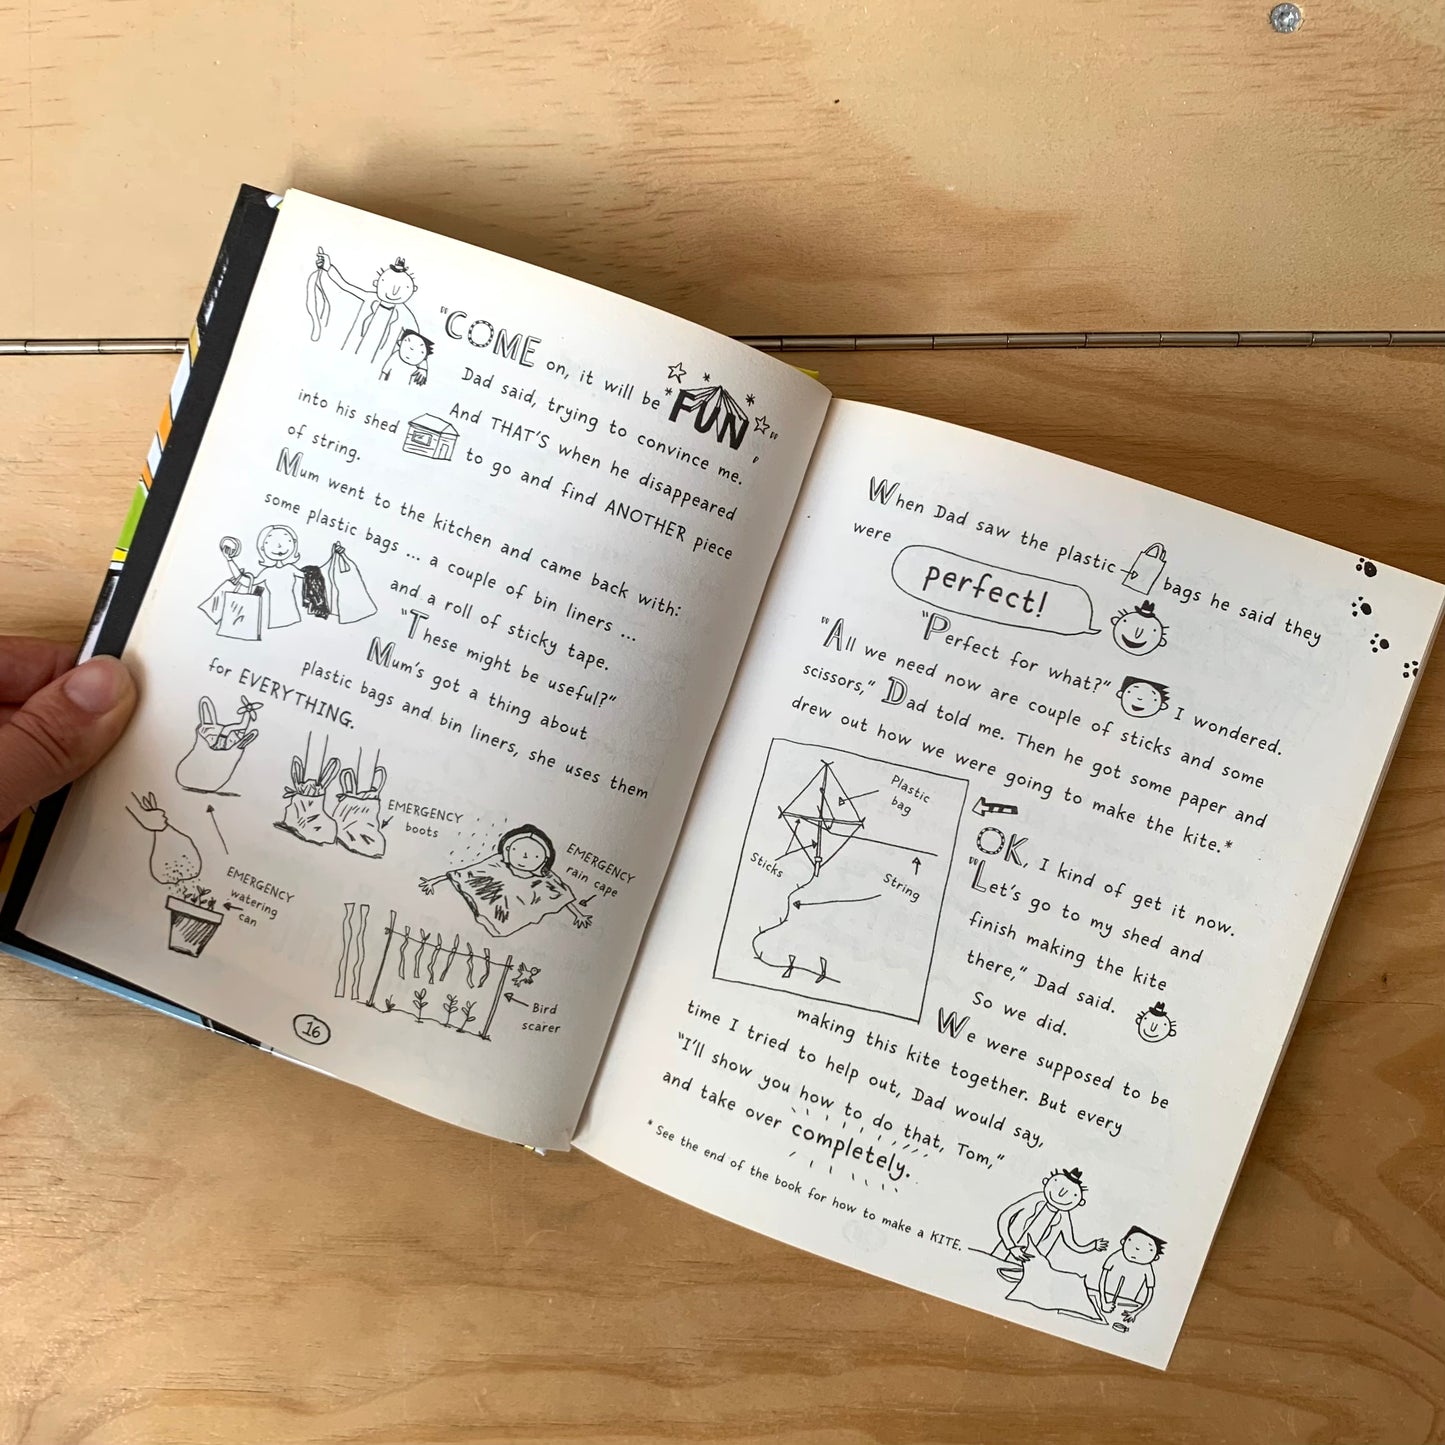 "COME on, it will be FUN,"
Dad said, trying to convince me.
And THAT'S when he disappeared
into his shed to go and find ANOTHER piece
of string.
Mum went to the kitchen and came back with:
some plastic bags ... a couple of bin liners ...
and a roll of sticky tape.
"These might be useful?"
Mum's got a thing about
plastic bags and bin liners, she uses them
for EVERYTHING.
EMERGENCY
boots
EMERGENCY
rain cape
EMERGENCY
watering
can
Bird
scarer
16
When Dad saw the plastic bags he said they
were perfect!
"Perfect for what?" I wondered.
"All we need now are couple of sticks and some
scissors," Dad told me. Then he got some paper and
drew out how we were going to make the kite.*
Plastic
bag
Sticks
String
OK, I kind of get it now.
"Let's go to my shed and
finish making the kite
there," Dad said.
So we did.
We were supposed to be
making this kite together. But every
time I tried to help out, Dad would say,
"I'll show you how to do that, Tom,"
and take over completely.
* See the end of the book for how to make a KITE.